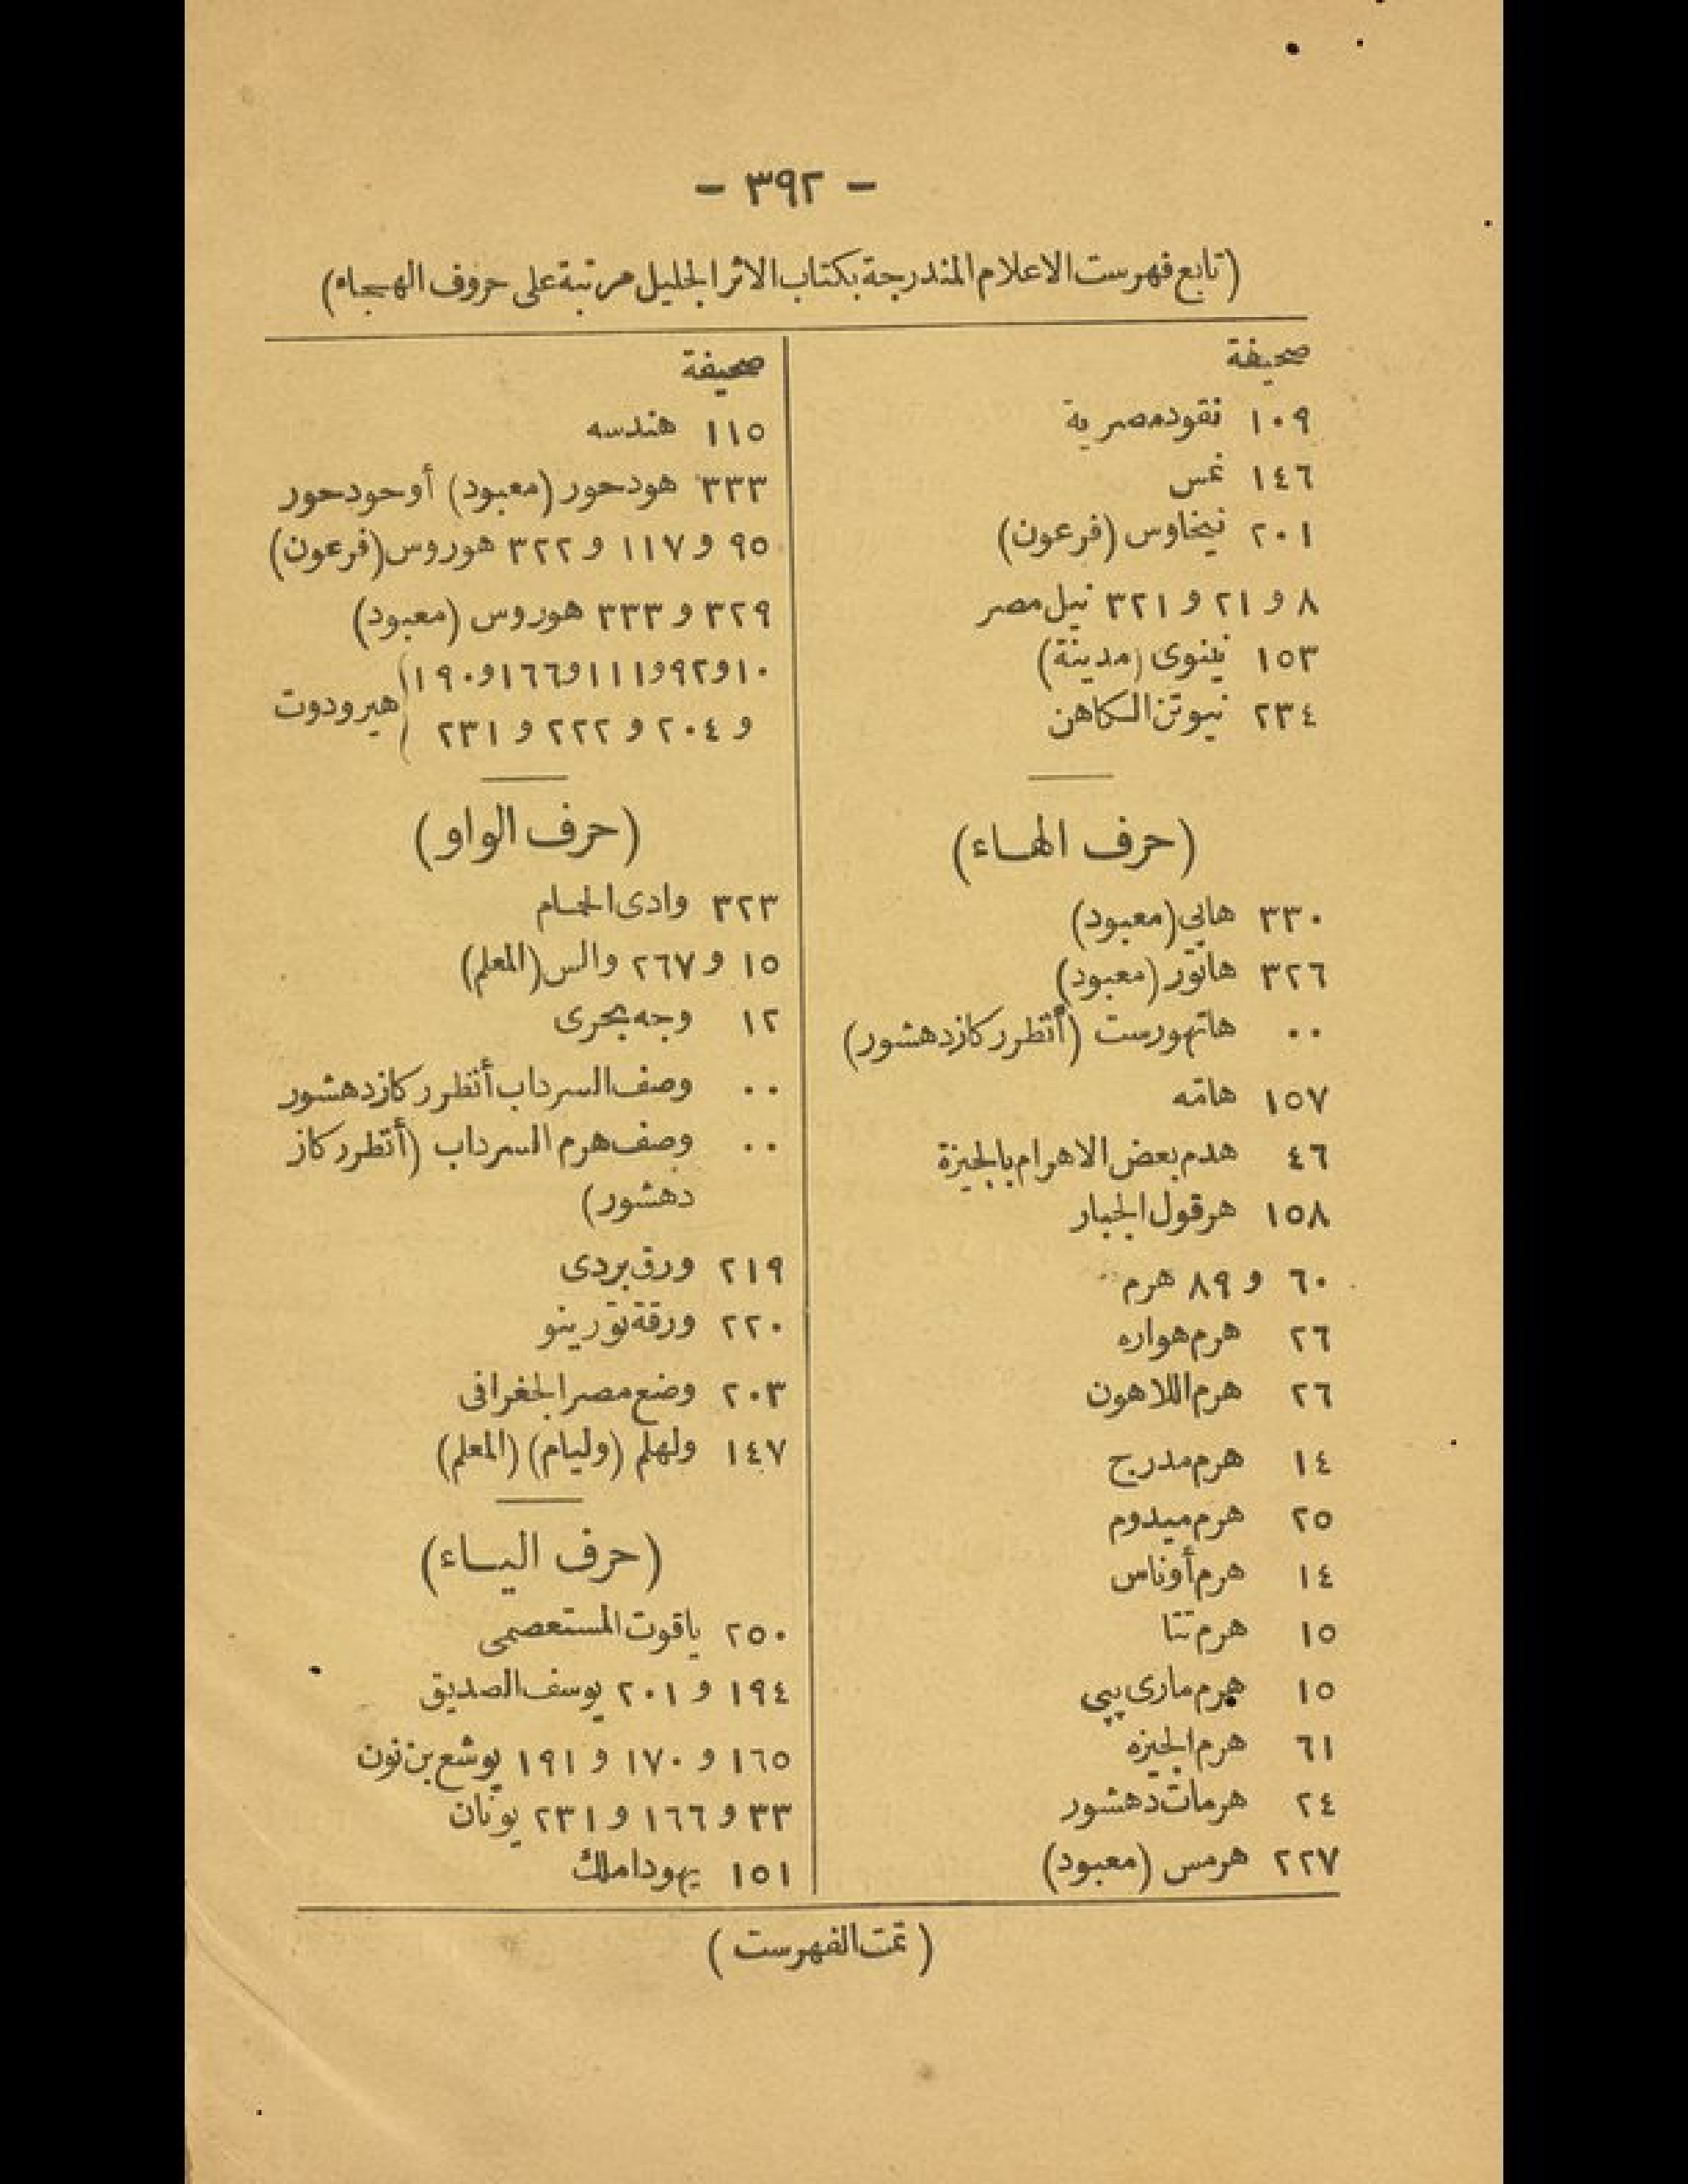 - ٣٩٢ -
(تابع فهرست الاعلام المندرجة بكتاب الاثر الجليل مرتبة على حروف الهجاء)
صحيفة
١٠٩ نقود مصرية
١٤٦ نمس
٢٠١ نيخاوس (فرعون)
٨ و ٢١ و ٣٢١ نيل مصر
١٥٣ نينوى (مدينة)
٢٣٤ نيوتن الكاهن
(حرف الهاء)
٣٣٠ هابي (معبود)
٣٢٦ هاتور (معبود)
٠٠ هاتهورست (أنظر ركاز دهشور)
١٥٧ هامّه
٤٦ هدم بعض الاهرام بالجيزة
١٥٨ هرقول الجبار
٦٠ و ٨٩ هرم
٢٦ هرم هواره
٢٦ هرم اللاهون
١٤ هرم مدرج
٢٥ هرم ميدوم
١٤ هرم أوناس
١٥ هرم تتا
١٥ هرم مارى پپى
٦١ هرم الجيزه
٢٤ هرمات دهشور
٢٢٧ هرمس (معبود)
صحيفة
١١٥ هندسه
٣٣٣ هود حور (معبود) أو حود حور
٩٥ و ١١٧ و ٣٢٢ هوروس (فرعون)
٣٢٩ و ٣٣٣ هوروس (معبود)
١٠ و ٩٢ و ١١١ و ١٦٦ و ١٩٠
و ٢٠٤ و ٢٢٢ و ٢٣١ هيرودوت
(حرف الواو)
٣٢٣ وادى الحمام
١٥ و ٢٦٧ والس (المعلم)
١٢ وجه بحرى
٠٠ وصف السرداب أنظر ركاز دهشور
٠٠ وصف هرم السرداب (أنظر ركاز
دهشور)
٢١٩ ورق بردى
٢٢٠ ورقة تورينو
٢٠٣ وضع مصر الجغرافى
١٤٧ ولهلم (وليام) (المعلم)
(حرف الياء)
٢٥٠ ياقوت المستعصمى
١٩٤ و ٢٠١ يوسف الصديق
١٦٥ و ١٧٠ و ١٩١ يوشع بن نون
٣٣ و ١٦٦ و ٢٣١ يونان
١٥١ يهودا ملك
(تمت الفهرست)